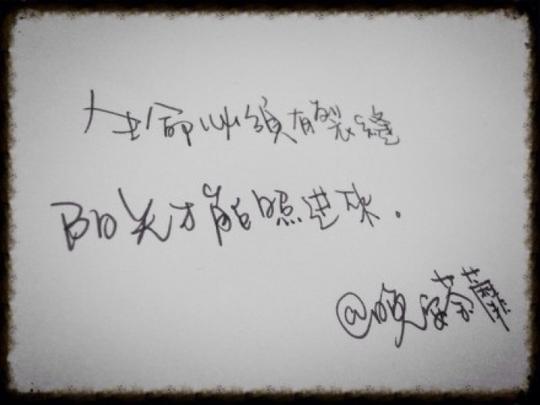 生命必须有裂缝
阳光才能照进来.
@晚安